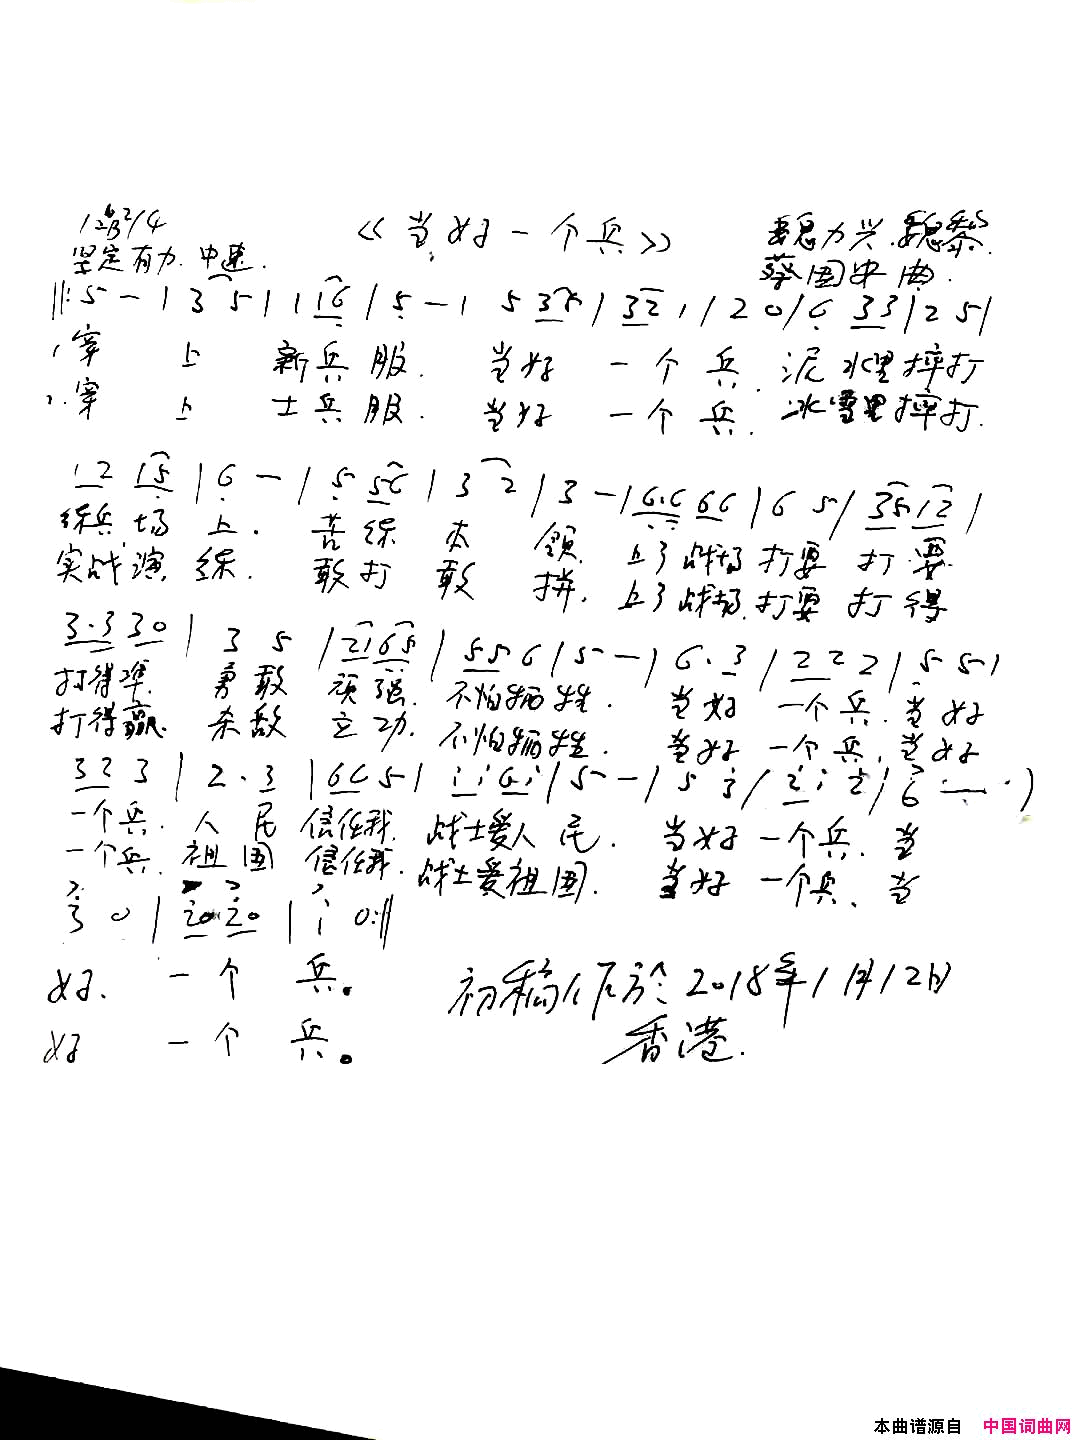 《当好一个兵》
坚定有力 中速.
魏力兴.魏黎
蔡国中曲.
||: 5 - | 3 5 | 1 1 6 | 5 - | 5 3 5 | 3 2 1 | 2 0 | 6 3 3 | 2 5 |
1.穿 上 新兵服. 当好 一个兵. 泥水里摔打
2.穿 上 士兵服. 当好 一个兵. 冰雪里摔打.
1 2 1 5 | 6 - | 5 5 6 | 3 2 | 3 - | 6.6 6 6 | 6 5 | 3 5 1 2 |
练兵场上. 苦练 本 领. 上了战场 打要打 要
实战演练. 敢打 敢 拼. 上了战场.打要打得
3.3 3 0 | 3 5 | 2 1 6 5 | 5 5 6 | 5 - | 6. 3 | 2 2 2 | 5 5 |
打得准. 勇敢 顽强. 不怕牺牲. 当好 一个兵.当好
打得赢. 杀敌 立功. 不怕牺牲. 当好 一个兵.当好
3 2 3 | 2. 3 | 6 6 5 | i i 6 i | 5 - | 5 3 | 2 i 2 | 6
一个兵. 人民 信任我. 战士爱人民. 当好一个兵. 当
一个兵. 祖国 信任我. 战士爱祖国. 当好 一个兵. 当
3 0 | 2 0 2 0 | i 0 :||
好. 一个 兵。
好 一个 兵。
初稿作於2018年1月12日
香港.
本曲谱源自 中国词曲网